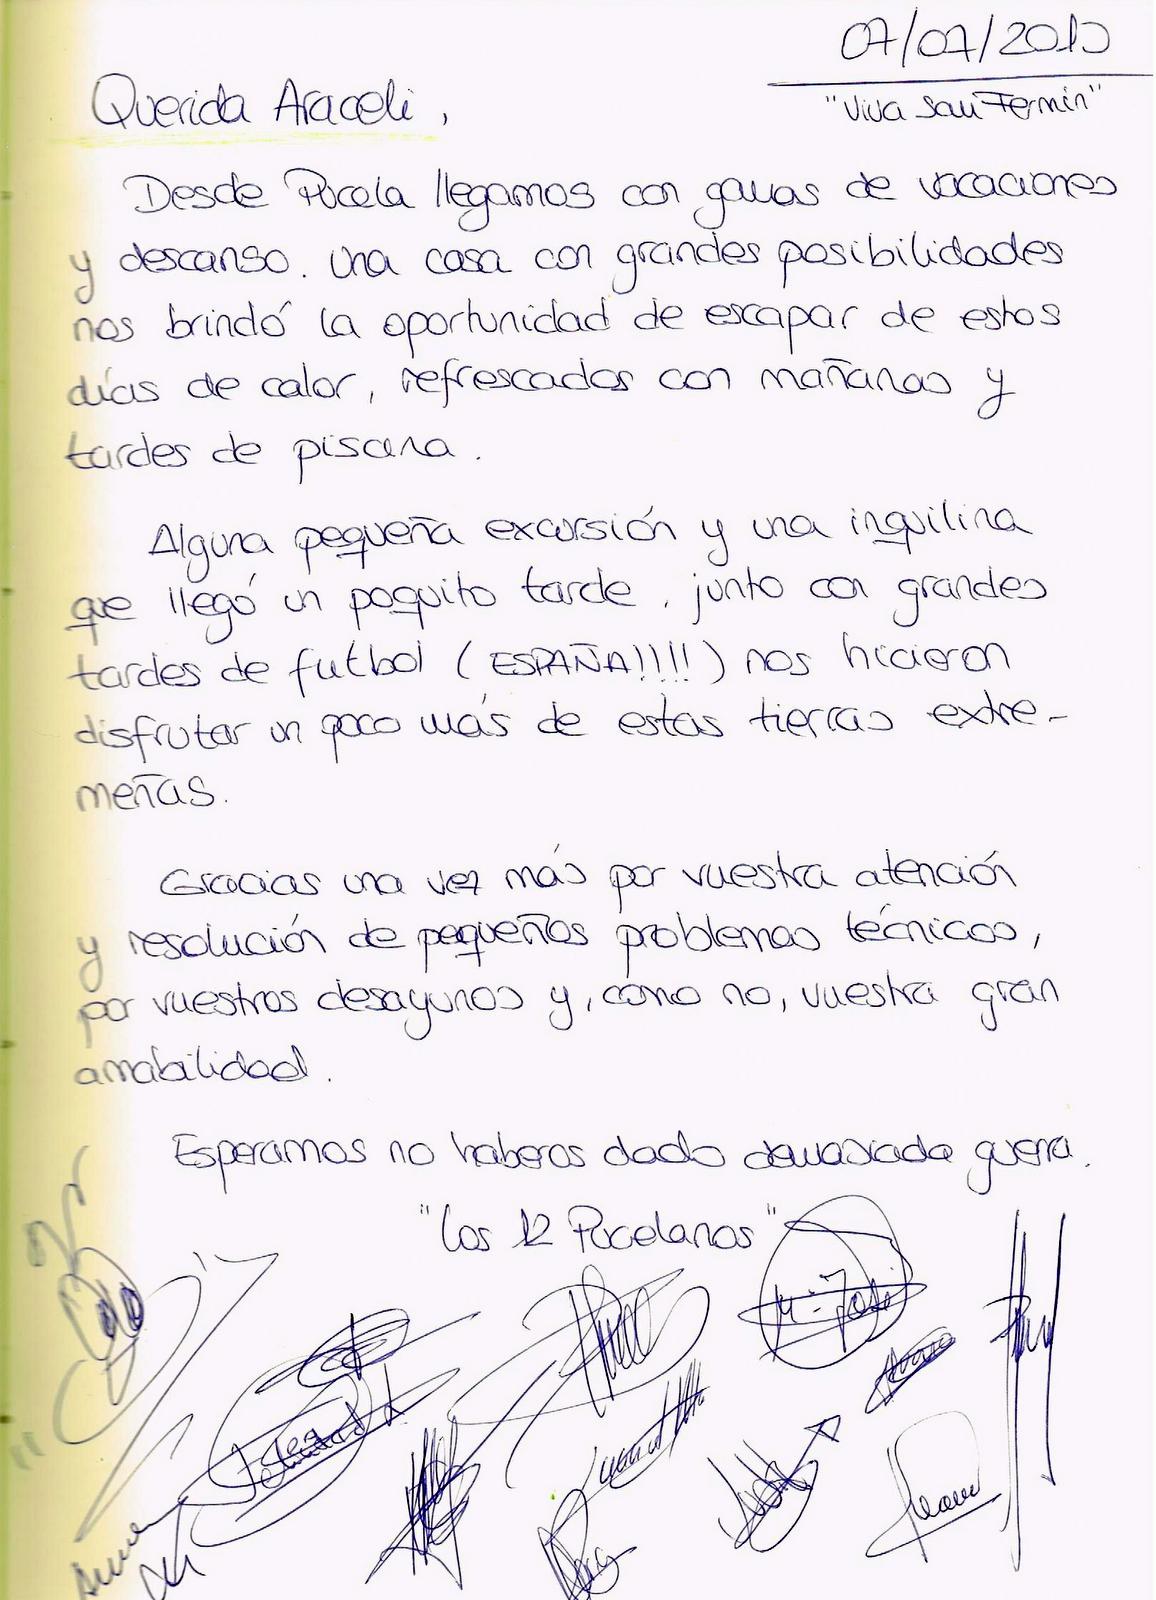 07/07/2010
"Viva San Fermín"
Querida Araceli,
Desde Pucela llegamos con ganas de vacaciones
y descanso. Una casa con grandes posibilidades
nos brindó la oportunidad de escapar de estos
días de calor, refrescados con mañanas y
tardes de piscina.
Alguna pequeña excursión y una inquilina
que llegó un poquito tarde, junto con grandes
tardes de futbol (ESPAÑA!!!!) nos hicieron
disfrutar un poco más de estas tierras extre-
meñas.
Gracias una vez más por vuestra atención
y resolución de pequeños problemas técnicos,
por vuestros desayunos y, como no, vuestra gran
amabilidad.
Esperamos no haberos dado demasiada guerra.
"Los 12 Pucelanos"
Mª José